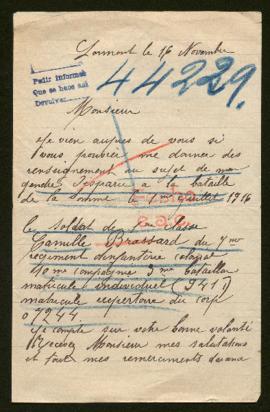 Lormont le 16 Novembre
Pedir informes
Que se hace así
Devolver
44229.
Monsieur
Je vien aupres de vous si
vous pourriez me donner des
renseignement au sujet de mon
gendre Disparu a la bataille
de la Somme le 1er Juillet 1916
Le soldat de 1ere classe
Camille Brassard du 7me
regiment d'infanterie colonial
10me compagnie 3me bataillon
matricule individuel (941)
matricule repertoire du corp
07244.
Je compte sur votre bonne volonté
Recevez Monsieur mes salutations
et tout mes remerciments davance